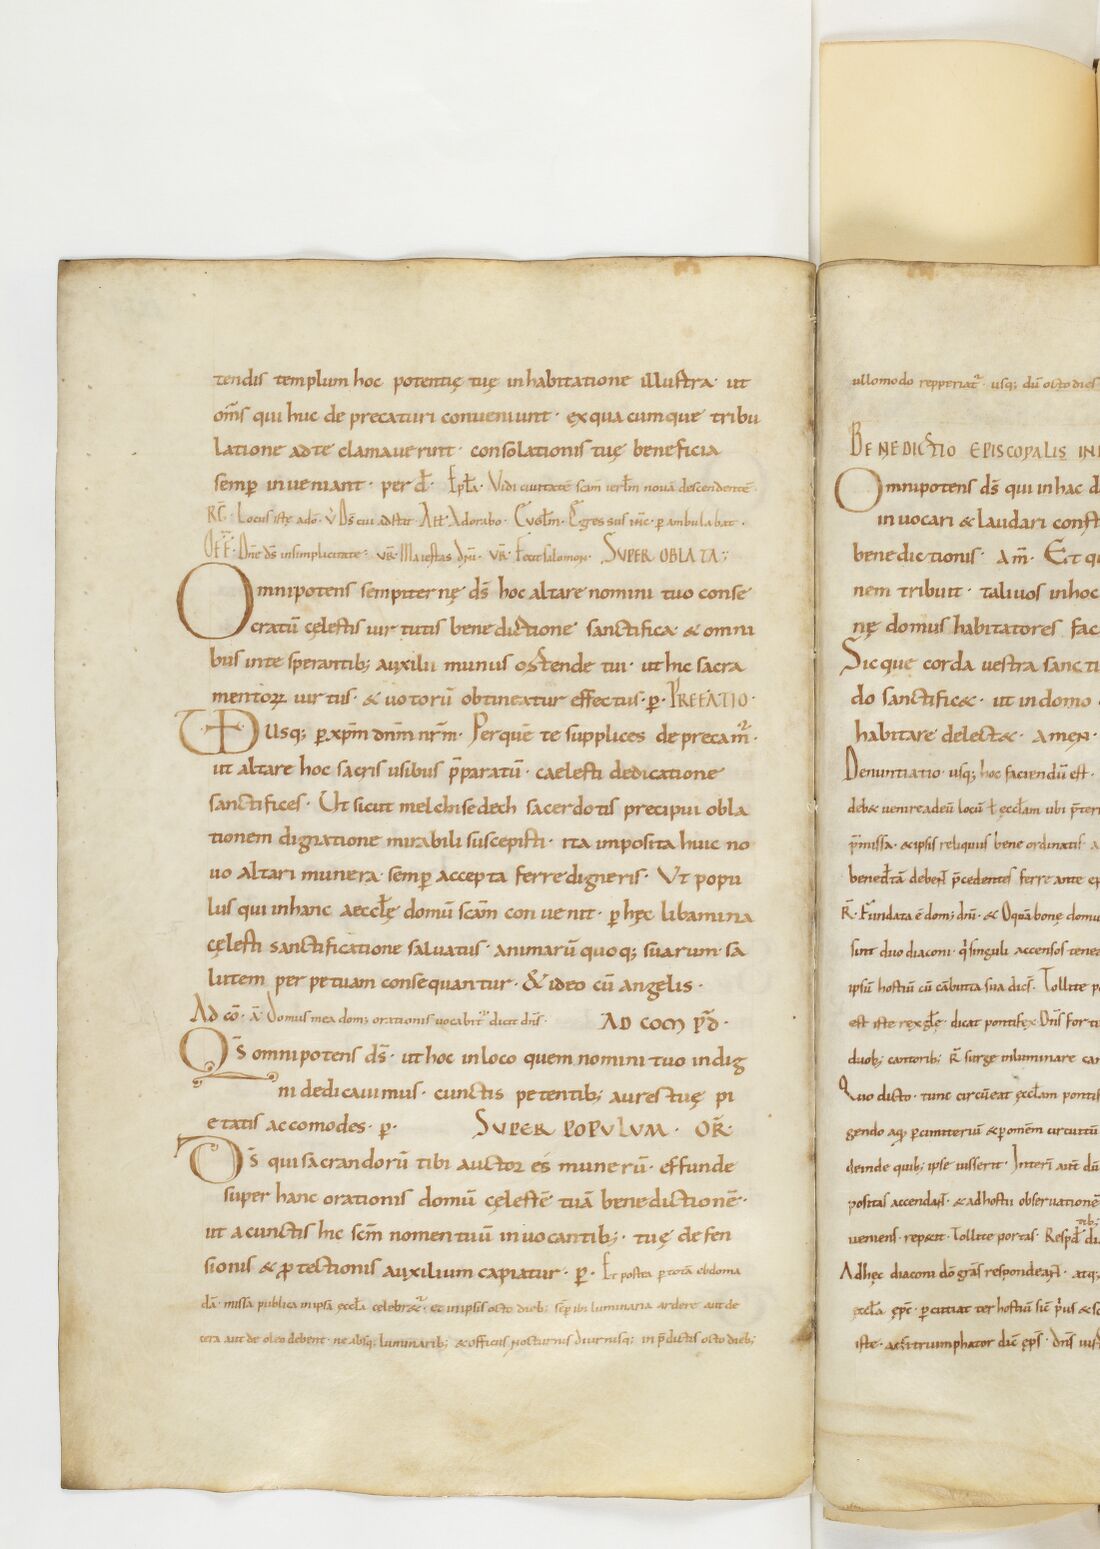 tendis templum hoc potentię tuę inhabitatione illustra · ut
om̅s qui huc de precaturi conueniunt · ex quacumque tribu
latione ad te clamauerunt · consolationis tuę beneficia
semp̲ inueniant · per d̅ · Ep̅la · Vidi ciuitate̅ sc̅am ierl̅m noua̅ descendente̅ ·
R̅ · Locus iste a do̅ · V̇ D̅s cui adstit · All̅ Adorabo · Eu̅ol̅m · Egressus ih̅c · p̲ambulabat ·
Off̅ · Dn̅e d̅s in simplicitate · VR̅ · Maiestas dn̅i · VR̅ · Fecit salomon · SUPER OBLATA ·
Omnipotens sempiternę d̅s hoc altare nomini tuo conse
cratu̅ cęlestis uirtutis benedictione sanctifica · & omni
bus in te sperantib; auxilii munus ostende tui · ut hic sacra
mentoꝝ uirtus · & uotoru̅ obtineatur effectus · p̲ · PREFATIO ·
VD Usq; p̲ xp̅m dn̅m nr̅m · Per que̅ te supplices deprecam̅ ·
ut altare hoc sacris usibus p̅paratu̅ · caelesti dedicatione
sanctifices · Ut sicut melchisedech sacerdotis precipui obla
tionem dignatione mirabili suscepisti · ita imposita huic no
uo altari munera semp̲ accepta ferre digneris · Ut popu
lus qui in hanc aeccl̅ę domu̅ sc̅am conuenit · p̲ hęc libamina
cęlesti sanctificatione saluatus · animaru̅ quoq; suarum sa
lutem perpetuam consequantur · & ideo cu̅ angelis ·
Ad co̅ · a̅ Domus mea dom; orationis uocabit̅ dicit dn̅s · AD COM P̅D ·
Qs̅ omnipotens d̅s · ut hoc in loco quem nomini tuo indig
ni dedicauimus · cunctis petentib; aures tuę pi
etatis accomodes · p̲ · SUPER POPULUM · OR̅ ·
Ds̅ qui sacrandoru̅ tibi auctor es muneru̅ · effunde
super hanc orationis domu̅ cęleste̅ tua̅ benedictione̅ ·
ut a cunctis hic sc̅m nomen tuu̅ inuocantib; · tuę defen
sionis & p̲tectionis auxilium capiatur · p̲ · Et postea p̲ tota̅ ebdoma
da̅ · missa publica in ipsa eccl̅a celebr&̅ · et in ipsis octo dieb; semp̲ ibi luminaria ardere aut de
cera aut de oleo debent · ne absq; luminarib; & officiis nocturnis diurnisq; in p̅dictis octo dieb;
ullomodo repperiat̅ · usq; du̅ octo dies
BENEDICTIO EPISCOPALIS IN
Omnipotens d̅s qui in hac d
inuocari & laudari const
benedictionis · am̅ · Et qu
nem tribuit · tali uos in hoc
nę domus habitatores fac
Sicque corda uestra sancti
do sanctific& · ut in domo
habitare delect& · amen ·
Denuntiatio usq; hoc faciendu̅ est ·
deb& uenire ad eu̅ locu̅ ł ęccl̅am ubi p̅teri
p̅missa · & ipsis reliquiis bene ordinatis · a
bened̅ta̅ deben̅t p̅cedentes ferre ante ep
R̅ · Fundata e̅ dom; dn̅i · & O qua̅ bonę domu
sint duo diaconi · q̅ singuli accensos tenea
ipsu̅ hostiu̅ cu̅ ca̅butta sua dic̅s · Tollite p
est iste rex gl̅ę · dicat pontifex · Dn̅s forti
duob; cantorib; R̅ surge inluminare can
Quo dicto · tunc circu̅eat ęccl̅am pontif
gendo aq; p̲ cimiteriu̅ & p̲ om̅em circuitu̅
deinde quib; ipse iusserit · Interi̅ aut̅ du̅
positas accendan̅t · & ad hostii obseruatione̅
ueniens · repe&it · Tollite portas · Resp̅d̅ di
Ad hęc diaconi do̅ gr̅as respondean̅t · atq;
eccl̅a ep̅c · p̲cutiat ter hostiu̅ sic̅ p̅us & sc
iste · ac si triumphator dic̅ ep̅s · dn̅s uir̅t